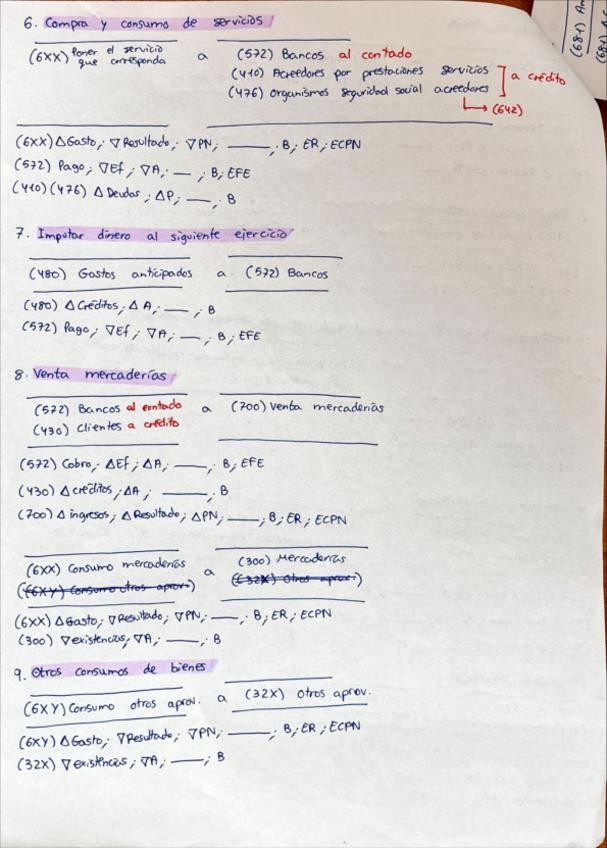 6. Compra y consumo de servicios
(6XX) Poner el servicio que corresponda a (572) Bancos al contado
(410) Acreedores por prestaciones servicios
(476) Organismos seguridad social acreedores
a crédito
→ (642)
(6XX) △Gasto; ▽Resultado; ▽PN; ____; B; ER; ECPN
(572) Pago; ▽Ef; ▽A; __; B; EFE
(410) (476) △ Deudas; △P; __; B
7. Imputar dinero al siguiente ejercicio
(480) Gastos anticipados a (572) Bancos
(480) △ Créditos; △A; __; B
(572) Pago; ▽Ef; ▽A; __; B; EFE
8. Venta mercaderías
(572) Bancos al contado a (700) Venta mercaderías
(430) Clientes a crédito
(572) Cobro; △Ef; △A; ___; B; EFE
(430) △créditos; △A; ____; B
(700) △ ingresos; △Resultado; △PN; ___; B; ER; ECPN
(6XX) Consumo mercaderías a (300) Mercaderías
((6XY) Consumo otros aprov.) ((32X) Otros aprov.)
(6XX) △Gasto; ▽Resultado; ▽PN; ___; B; ER; ECPN
(300) ▽existencias; ▽A; ___; B
9. Otros consumos de bienes
(6XY) Consumo otros aprov. a (32X) Otros aprov.
(6XY) △Gasto; ▽Resultado; ▽PN; ____; B; ER; ECPN
(32X) ▽existencias; ▽A; ___; B
(681) Am